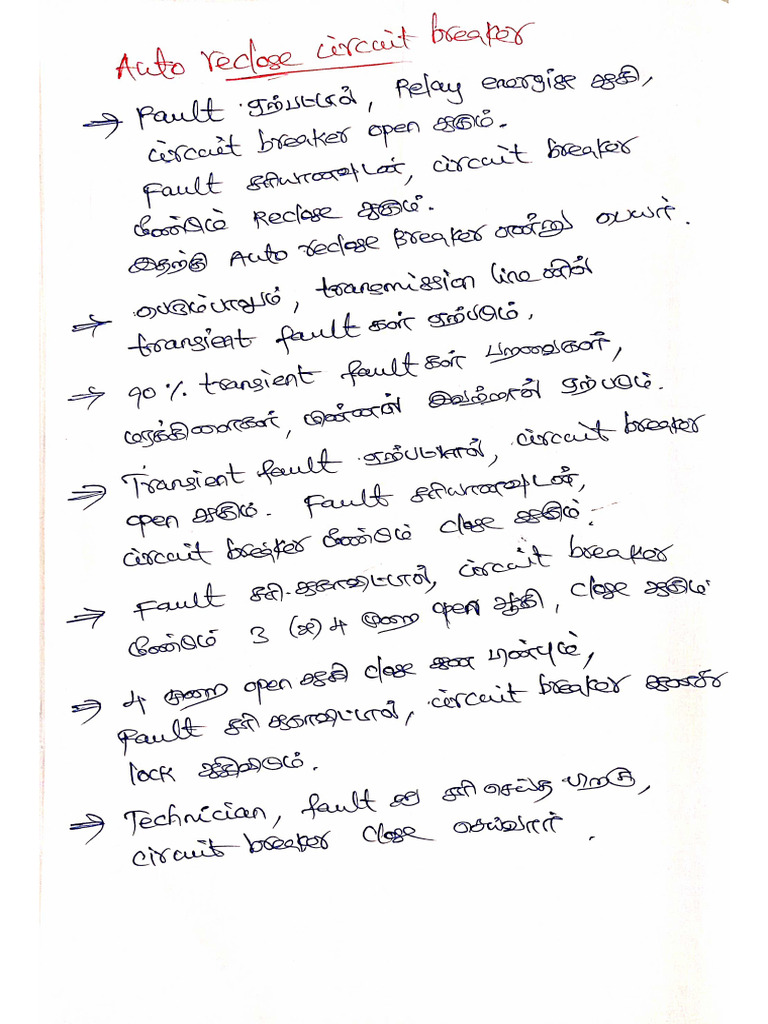 Auto reclose circuit breaker
→ Fault ஏற்பட்டால், Relay energise ஆகி,
circuit breaker open ஆகும்.
Fault சரியானவுடன், circuit breaker
மீண்டும் Reclose ஆகும்.
இதற்கு Auto reclose Breaker என்று பெயர்.
→ பெரும்பாலும், transmission line னில்
transient fault கள் ஏற்படும்.
→ 90% transient fault கள் பறவைகள்,
மரக்கிளைகள், மின்னல் இவற்றால் ஏற்படும்.
→ Transient fault ஏற்பட்டால், circuit breaker
open ஆகும். Fault சரியானவுடன்,
circuit breaker மீண்டும் close ஆகும்.
→ Fault சரி ஆகாவிட்டால், circuit breaker
மீண்டும் 3 (அ) 4 முறை open ஆகி, close ஆகும்.
→ 4 முறை open ஆகி close ஆன பின்பும்,
Fault சரி ஆகாவிட்டால், circuit breaker ஆனது
lock ஆகிவிடும்.
→ Technician, fault ஐ சரி செய்த பிறகு,
circuit breaker close செய்வார்.